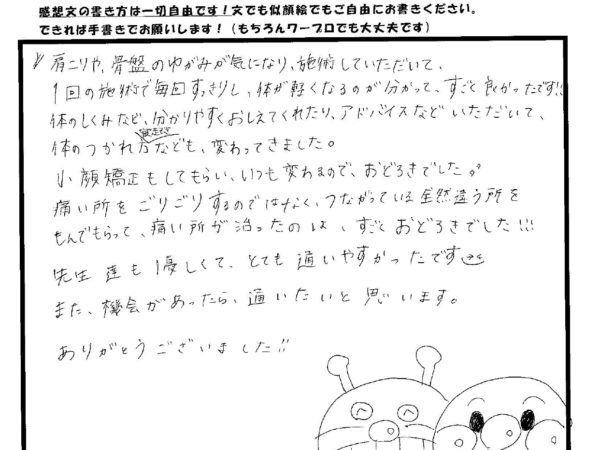 感想文の書き方は一切自由です！文でも似顔絵でもご自由にお書きください。
できれば手書きでお願いします！（もちろんワープロでも大丈夫です）
肩こりや、骨盤のゆがみが気になり、施術していただいて、
1回の施術で毎回すっきりし、体が軽くなるのが分かって、すごく良かったです!!
体のしくみなど、分かりやすくおしえてくれたり、アドバイスなどいただいて、
体のつかれ方なども、変わってきました。
小顔矯正もしてもらい、いつも変わるので、おどろきでした。
痛い所をごりごりするのではなく、つながっている全然違う所を
もんでもらって、痛い所が治ったのは、すごくおどろきでした!!!
先生達も優しくて、とても通いやすかったです
また、機会があったら、通いたいと思います。
ありがとうございました!!